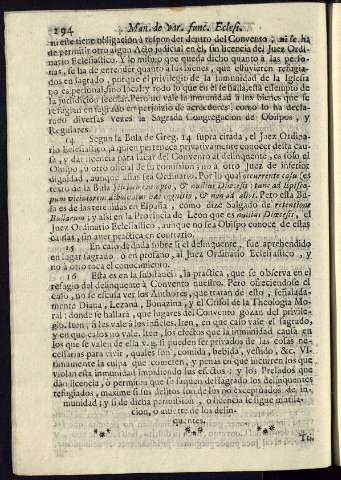 294 Man. de var. func. Ecles.
ni este tiene obligacion à responder dentro del Convento; ni se ha
de permitir otro algun Acto judicial en èl, sin licencia del Juez Ordi-
nario Eclesiastico. Y lo mismo que queda dicho quanto à las perso-
nas, se ha de entender quanto à los bienes, que estuvieren refugia-
dos en sagrado, porque el privilegio de la inmunidad de la Iglesia
no es personal, sino local; y todo lo que en èl se halla, està essempto de
la jurisdicion secular. Pero no vale la inmunidad à los bienes que se
refugian en sagrado en perjuicio de acreedores: como lo ha decla-
rado diversas vezes la Sagrada Congregacion de Obispos, y
Regulares.
14 Segun la Bula de Greg. 14. supra citada, el Juez Ordina-
rio Eclesiastico, à quien pertenece privativamente conocer desta cau-
sa, y dàr licencia para sacar del Convento al delinquente, es solo el
Obispo, u otro oficial de su comision; no à otro Juez de inferior
dignidad, aunque este sea Ordinario. Por lo qual
texto de la Bula
Pero esta Bu-
la es de las retenidas en España, como dize Salgado de retentione
Bullarum; y assi en la Provincia de Leon que es nullius Diœcesis, el
Juez Ordinario Eclesiastico, aunque no sea Obispo conoce de estas
causas, sin aver practica en contrario.
15 En caso de duda sobre si el delinquente, fue aprehendido
en lugar sagrado, ò en profano, al Juez Ordinario Eclesiastico, y
no à otro toca el conocimiento.
16 Esta es en la substancia, la practica, que se observa en el
refugio del delinquente à Convento nuestro. Pero ofreciendose el
caso, no se escusa ver los Authores, que tratan de esto, señalada-
mente Diana, Lezana, Bonazina, y el Crisol de la Theologia Mo-
ral: donde se hallarà, que lugares del Convento gozan del privile-
gio. Iten, si les vale à los infieles. Iten, en que caso vale el sagrado,
y en que casos no vale. Iten, los efectos que la inmunidad causa en
los que se valen de ella v. g. si pueden ser privados de las cosas ne-
cessarias para vivir, quales son, comida, bebida, vestido, &c. Vl-
timamente la culpa que cometen, y penas en que incurren los que
violan esta inmunidad impidiendo sus efectos: y los Prelados que
dàn licencia, ò permiten que se saquen del sagrado los delinquentes
refugiados, maxime si sus delitos son de los no exceptuados de in-
munidad; y si de dicha permission, ò licencia se sigue mutila-
cion, ò muerte de los delin-
quentes.
*** *** ***
Tit.